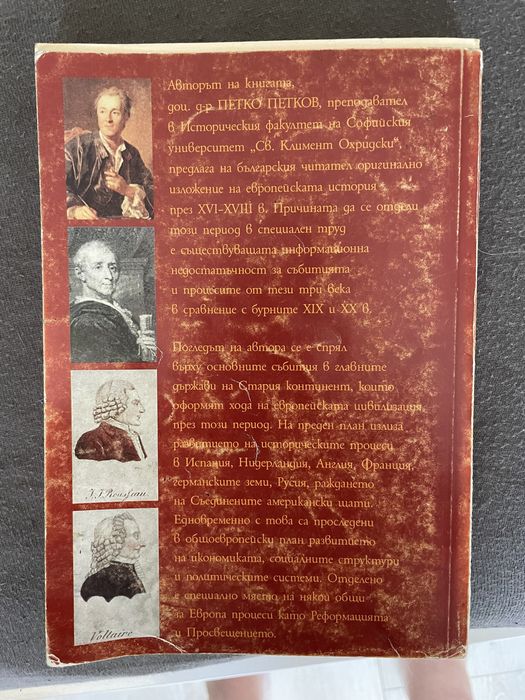 Авторът на книгата,
доц. д-р ПЕТКО ПЕТКОВ, преподавател
в Историческия факултет на Софийския
университет „Св. Климент Охридски“,
предлага на българския читател оригинално
изложение на европейската история
през XVI–XVIII в. Причината да се отдели
този период в специален труд
е съществуващата информационна
недостатъчност за събитията
и процесите от тези три века
в сравнение с бурните XIX и XX в.
Погледът на автора се е спрял
върху основните събития в главните
държави на Стария континент, които
оформят хода на европейската цивилизация
през този период. На преден план излиза
развитието на историческите процеси
в Испания, Нидерландия, Англия, Франция,
германските земи, Русия, раждането
на Съединените американски щати.
Едновременно с това са проследени
в общоевропейски план развитието
на икономиката, социалните структури
и политическите системи. Отделено
е специално място на някои общи
за Европа процеси като Реформацията
и Просвещението.
J. J. Rousseau.
Voltaire